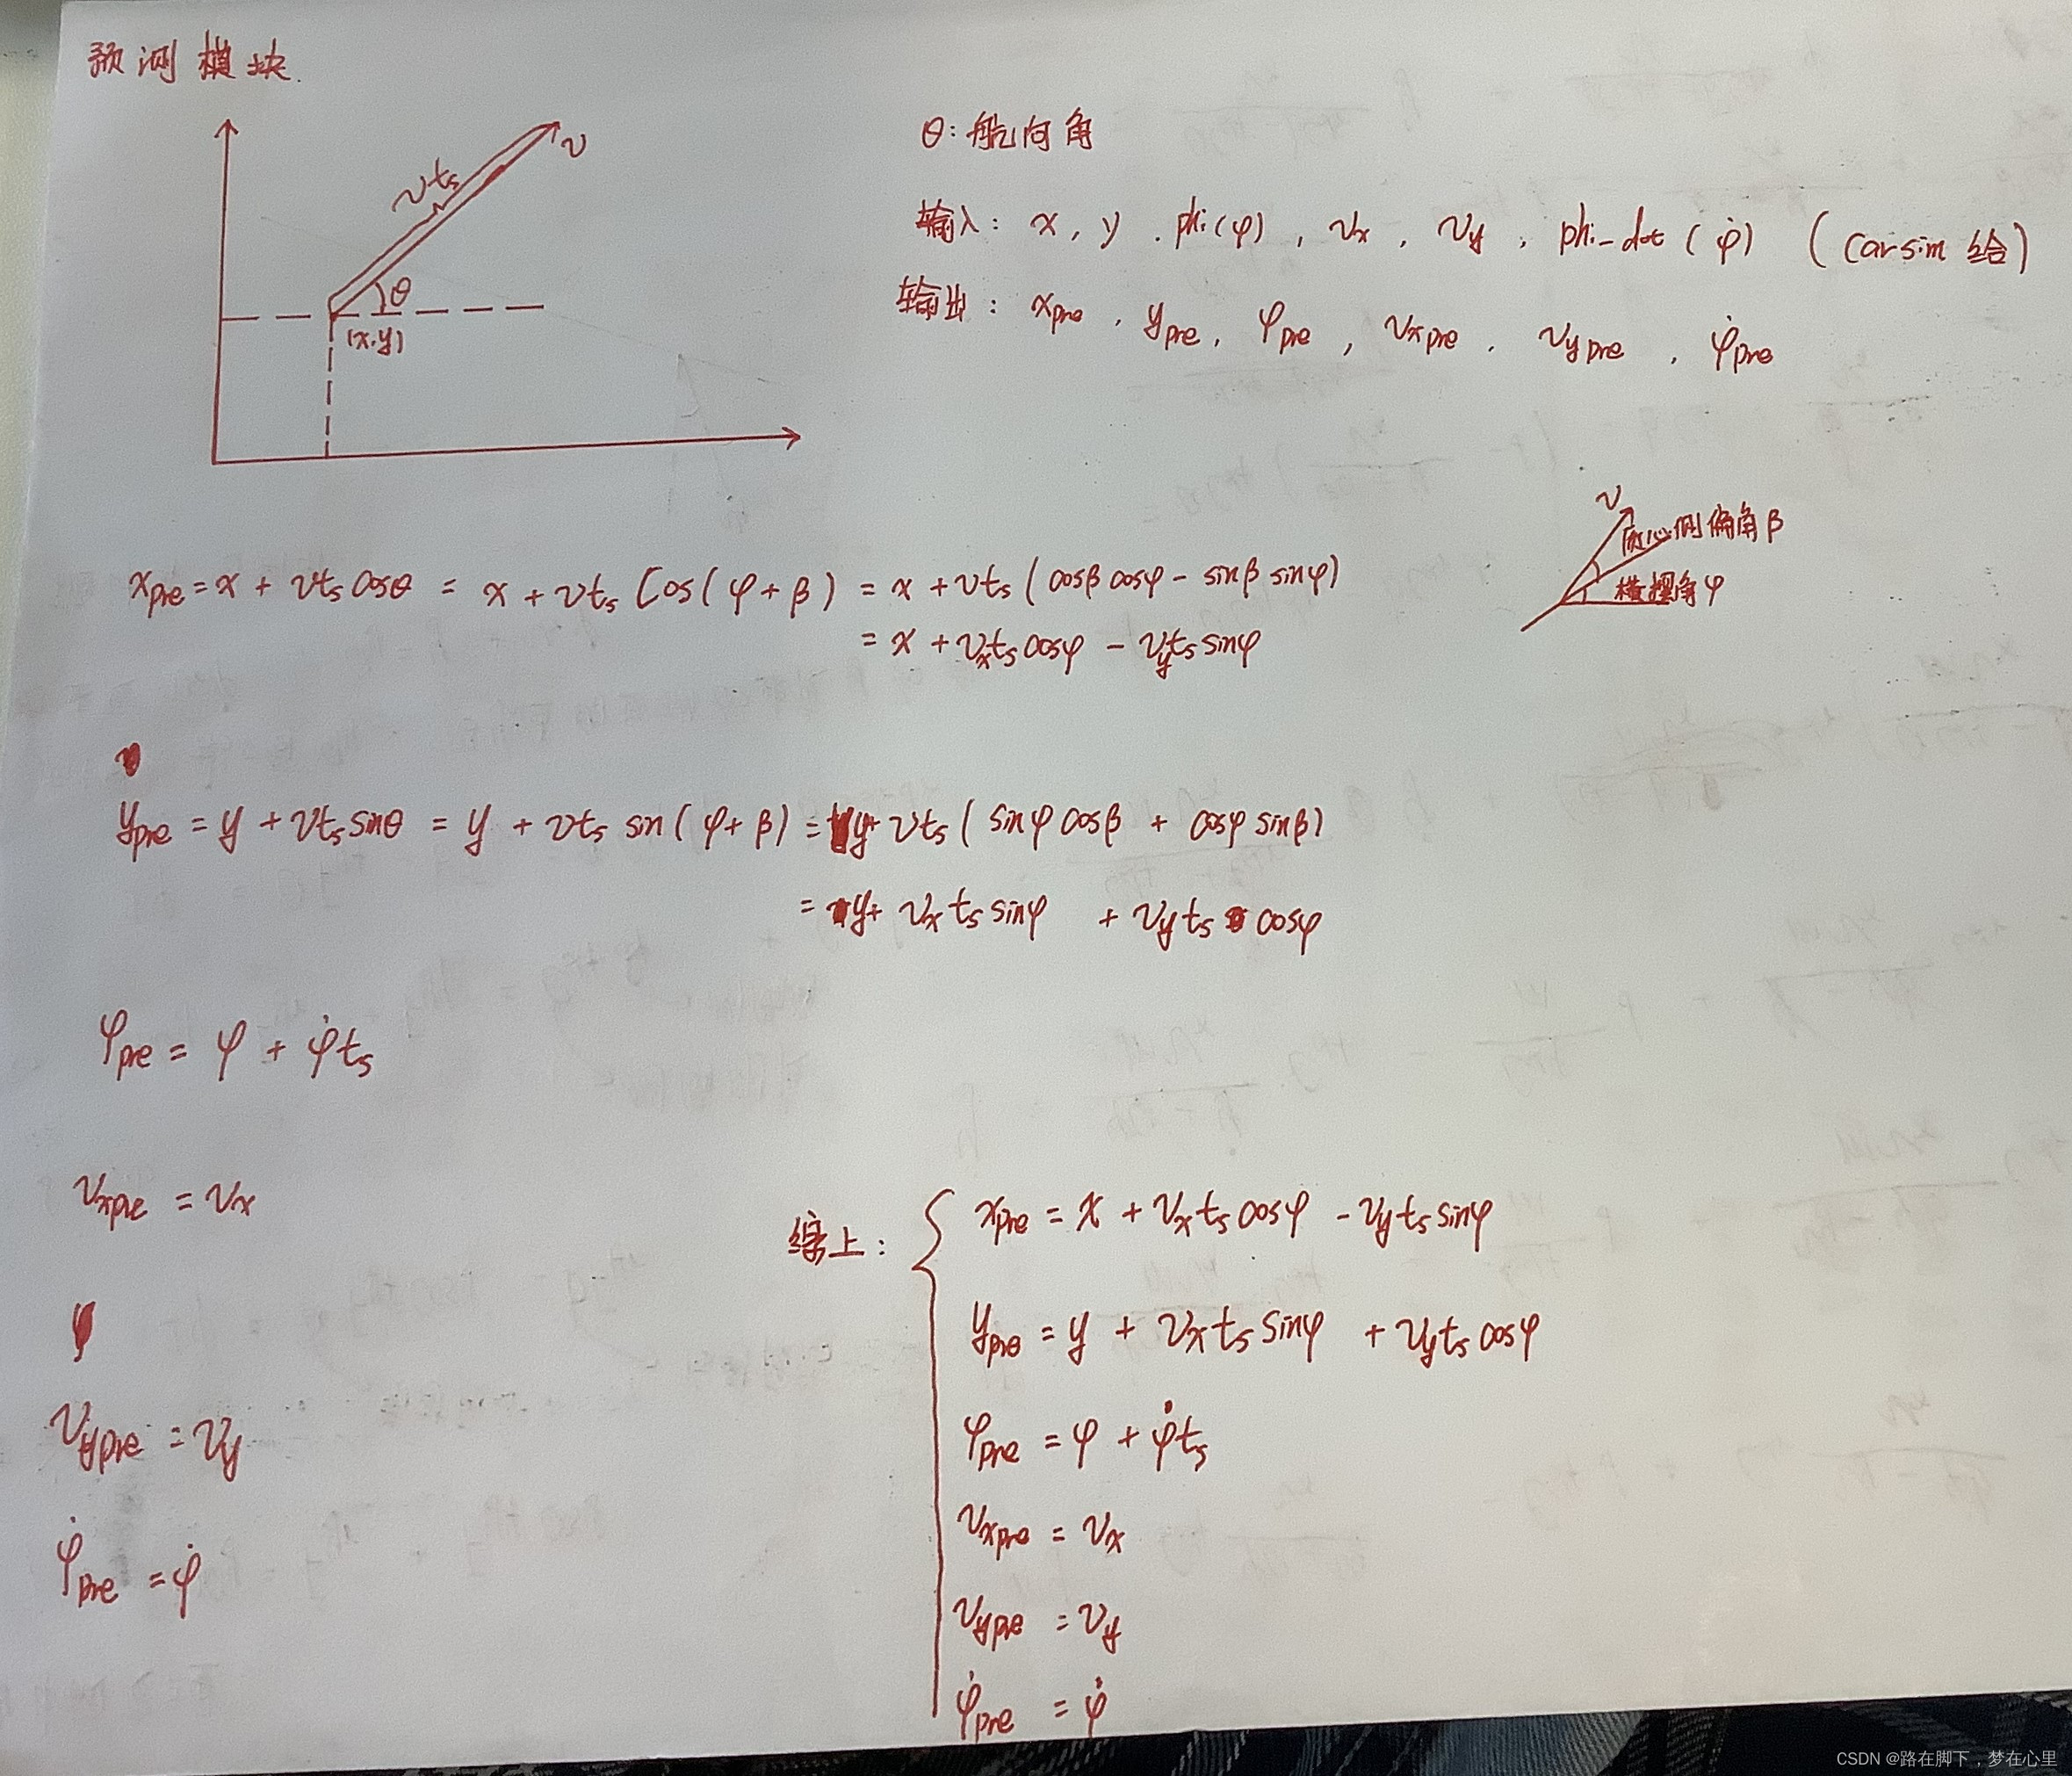 预测模块.
v
vts
θ
(x,y)
θ: 航向角
输入: x, y . phi(φ), vx, vy, phi_dot(φ̇) (carsim 给)
输出: xpre, ypre, φpre, vxpre, vypre, φ̇pre
v
质心侧偏角β
横摆角φ
xpre = x + vts cosθ = x + vts Cos(φ+β) = x + vts(cosβcosφ - sinβsinφ)
= x + vxts cosφ - vyts sinφ
ypre = y + vts sinθ = y + vts sin(φ+β) = y+ vts(sinφcosβ + cosφsinβ)
= y+ vxts sinφ + vyts cosφ
φpre = φ + φ̇ts
vxpre = vx
vypre = vy
φ̇pre = φ̇
综上: { xpre = x + vxts cosφ - vyts sinφ
ypre = y + vxts sinφ + vyts cosφ
φpre = φ + φ̇ts
vxpre = vx
vypre = vy
φ̇pre = φ̇
CSDN @路在脚下，梦在心里